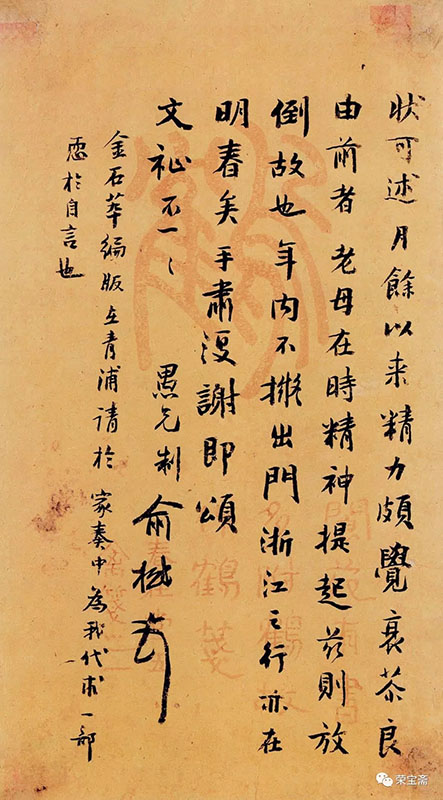 狀可述月餘以来精力頗覺衰苶良
由前者老母在時精神提起茲則放
倒故也年內不擬出門浙江之行亦在
明春矣手肅復謝即頌
文祉不一〻 愚兄制俞樾
金石萃編版在青浦請於家奏中為我代求一部
恧於自言也
荣宝斋